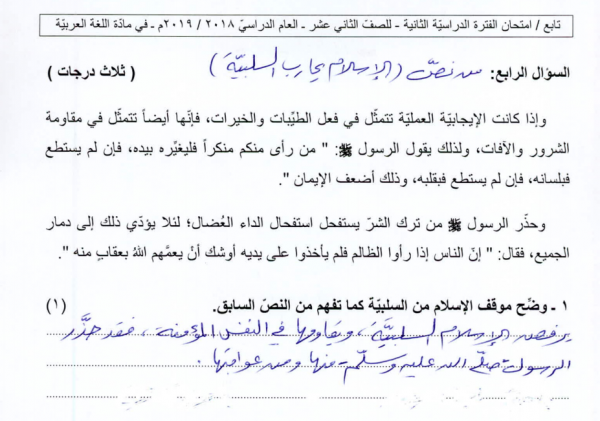 تابع / امتحان الفترة الدراسيّة الثانية - للصفّ الثاني عشر - العام الدراسيّ ٢٠١٨ / ٢٠١٩م - في مادّة اللغة العربيّة
السؤال الرابع: من نصّ (الإسلام يحارب السلبيّة) ( ثلاث درجات )
وإذا كانت الإيجابيّة العمليّة تتمثّل في فعل الطيِّبات والخيرات، فإنّها أيضاً تتمثّل في مقاومة
الشرور والآفات، ولذلك يقول الرسول ﷺ: " من رأى منكم منكراً فليغيِّره بيده، فإن لم يستطع
فبلسانه، فإن لم يستطع فبقلبه، وذلك أضعف الإيمان ".
وحذّر الرسول ﷺ من ترك الشرّ يستفحل استفحال الداء العُضال؛ لئلا يؤدّي ذلك إلى دمار
الجميع، فقال: " إنّ الناس إذا رأوا الظالم فلم يأخذوا على يديه أوشك أنْ يعمَّهم اللهُ بعقابٍ منه ".
١ ـ وضّح موقف الإسلام من السلبيّة كما تفهم من النصّ السابق. (١)
يرفض الإسلام السلبيَّة، ويقاومها في النفس المؤمنة، فقد حذَّر
الرسول صلّى الله عليه وسلّم منها ومن عواقبها.